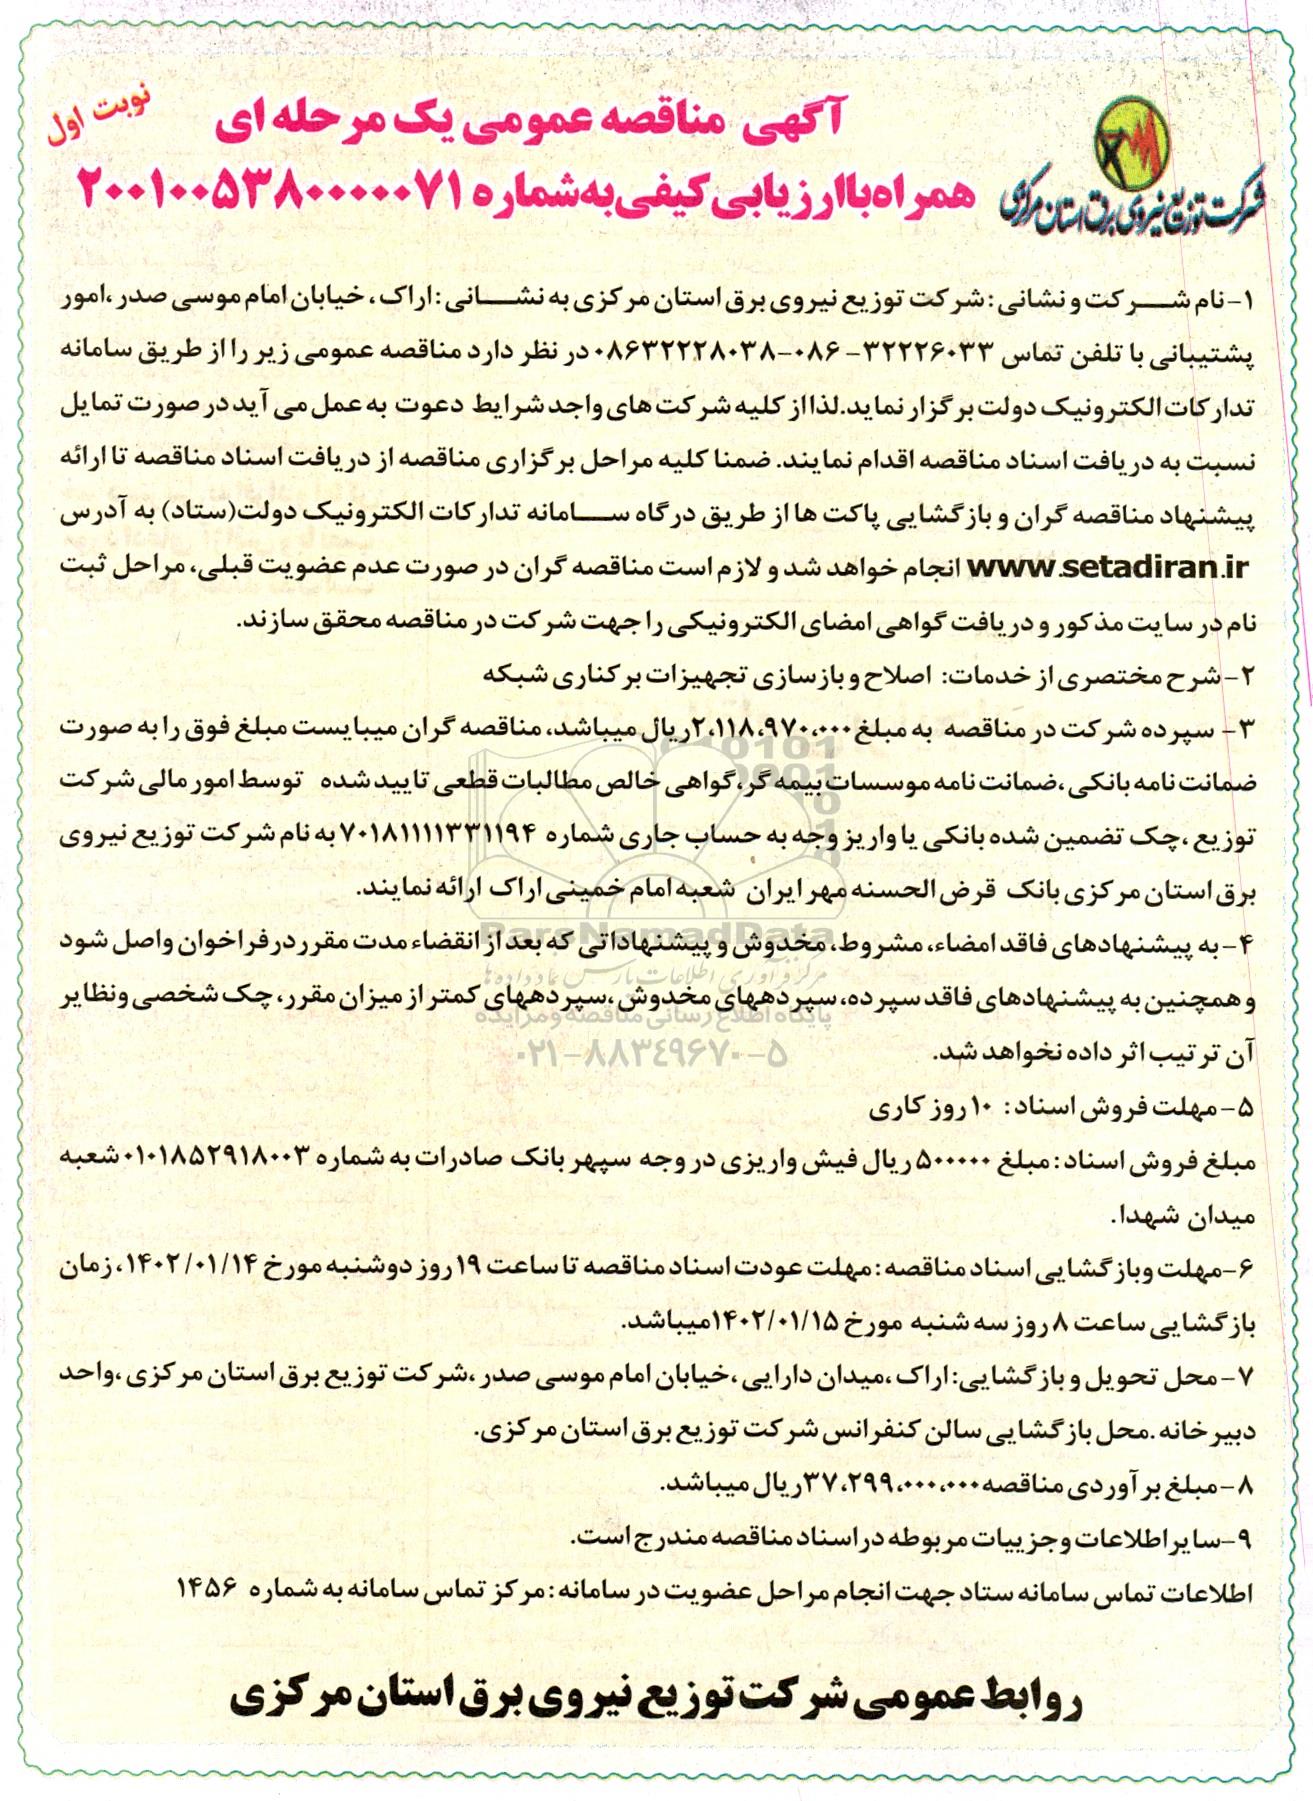 نوبت اول
آگهی مناقصه عمومی یک مرحله ای
همراه با ارزیابی کیفی به شماره ۲۰۰۱۰۰۵۳۸۰۰۰۰۰۷۱
شرکت توزیع نیروی برق استان مرکزی
۱- نام شرکت و نشانی : شرکت توزیع نیروی برق استان مرکزی به نشانی : اراک ، خیابان امام موسی صدر ،امور
پشتیبانی با تلفن تماس ۳۲۲۲۶۰۳۳- ۰۸۶-۰۸۶۳۲۲۲۸۰۳۸ در نظر دارد مناقصه عمومی زیر را از طریق سامانه
تدارکات الکترونیک دولت برگزار نماید.لذا از کلیه شرکت های واجد شرایط دعوت به عمل می آید در صورت تمایل
نسبت به دریافت اسناد مناقصه اقدام نمایند. ضمنا کلیه مراحل برگزاری مناقصه از دریافت اسناد مناقصه تا ارائه
پیشنهاد مناقصه گران و بازگشایی پاکت ها از طریق درگاه سامانه تدارکات الکترونیک دولت(ستاد) به آدرس
www.setadiran.ir انجام خواهد شد و لازم است مناقصه گران در صورت عدم عضویت قبلی، مراحل ثبت
نام در سایت مذکور و دریافت گواهی امضای الکترونیکی را جهت شرکت در مناقصه محقق سازند.
۲- شرح مختصری از خدمات: اصلاح و بازسازی تجهیزات برکناری شبکه
۳- سپرده شرکت در مناقصه به مبلغ ۲،۱۱۸،۹۷۰،۰۰۰ریال میباشد، مناقصه گران میبایست مبلغ فوق را به صورت
ضمانت نامه بانکی ،ضمانت نامه موسسات بیمه گر،گواهی خالص مطالبات قطعی تایید شده توسط امور مالی شرکت
توزیع ،چک تضمین شده بانکی یا واریز وجه به حساب جاری شماره ۷۰۱۸۱۱۱۱۱۳۳۱۱۹۴ به نام شرکت توزیع نیروی
برق استان مرکزی بانک قرض الحسنه مهر ایران شعبه امام خمینی اراک ارائه نمایند.
۴- به پیشنهادهای فاقد امضاء، مشروط، مخدوش و پیشنهاداتی که بعد از انقضاء مدت مقرر در فراخوان واصل شود
و همچنین به پیشنهادهای فاقد سپرده، سپردههای مخدوش ،سپردههای کمتر از میزان مقرر، چک شخصی ونظایر
آن ترتیب اثر داده نخواهد شد.
۵- مهلت فروش اسناد : ۱۰ روز کاری
مبلغ فروش اسناد : مبلغ ۵۰۰۰۰۰ ریال فیش واریزی در وجه سپهر بانک صادرات به شماره ۰۱۰۱۸۵۲۹۱۸۰۰۳ شعبه
میدان شهدا.
۶-مهلت وبازگشایی اسناد مناقصه : مهلت عودت اسناد مناقصه تا ساعت ۱۹ روز دوشنبه مورخ ۱۴۰۲/۰۱/۱۴، زمان
بازگشایی ساعت ۸ روز سه شنبه مورخ ۱۴۰۲/۰۱/۱۵میباشد.
۷- محل تحویل و بازگشایی: اراک ،میدان دارایی ،خیابان امام موسی صدر ،شرکت توزیع برق استان مرکزی ،واحد
دبیرخانه .محل بازگشایی سالن کنفرانس شرکت توزیع برق استان مرکزی.
۸- مبلغ برآوردی مناقصه۳۷،۲۹۹،۰۰۰،۰۰۰ریال میباشد.
۹-سایر اطلاعات و جزییات مربوطه در اسناد مناقصه مندرج است.
اطلاعات تماس سامانه ستاد جهت انجام مراحل عضویت در سامانه : مرکز تماس سامانه به شماره ۱۴۵۶
روابط عمومی شرکت توزیع نیروی برق استان مرکزی
ParsNamadData
مرکز فرآوری اطلاعات پارس نماد داده ها
پایگاه اطلاع رسانی مناقصه و مزایده
۰۲۱-۸۸۳۴۹۶۷۰-۵